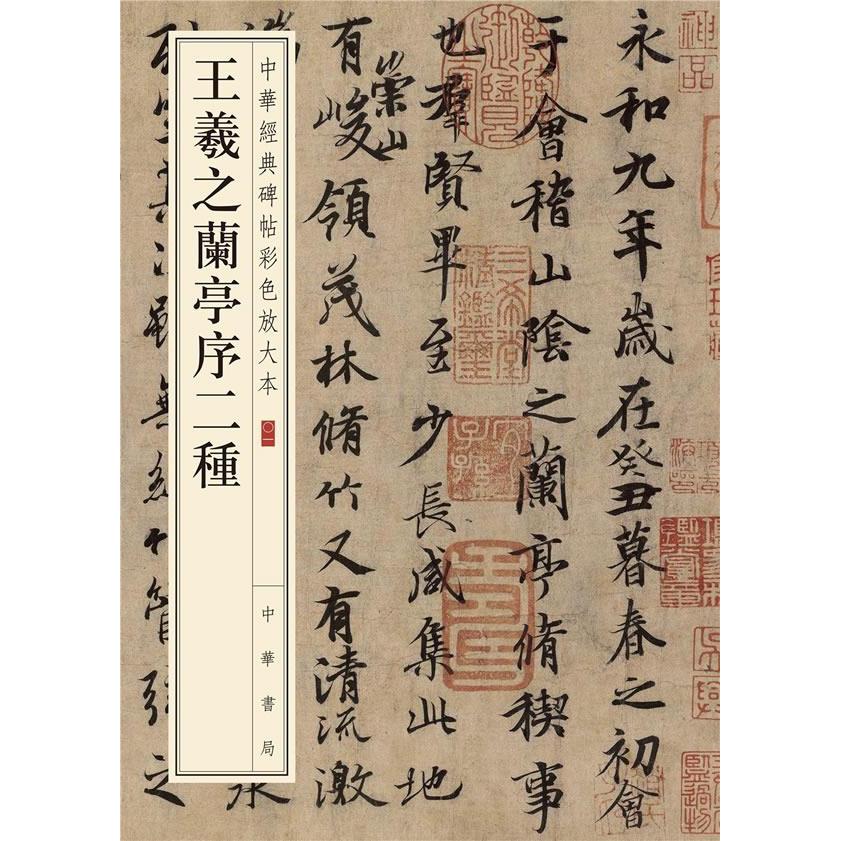 神品
永和九年歲在癸丑暮春之初會
于會稽山陰之蘭亭脩稧事
也羣賢畢至少長咸集此地
有崇山峻領茂林脩竹又有清流激
三希堂精鑑璽
宜子孫
中華經典碑帖彩色放大本 〇一
中華書局
王羲之蘭亭序二種